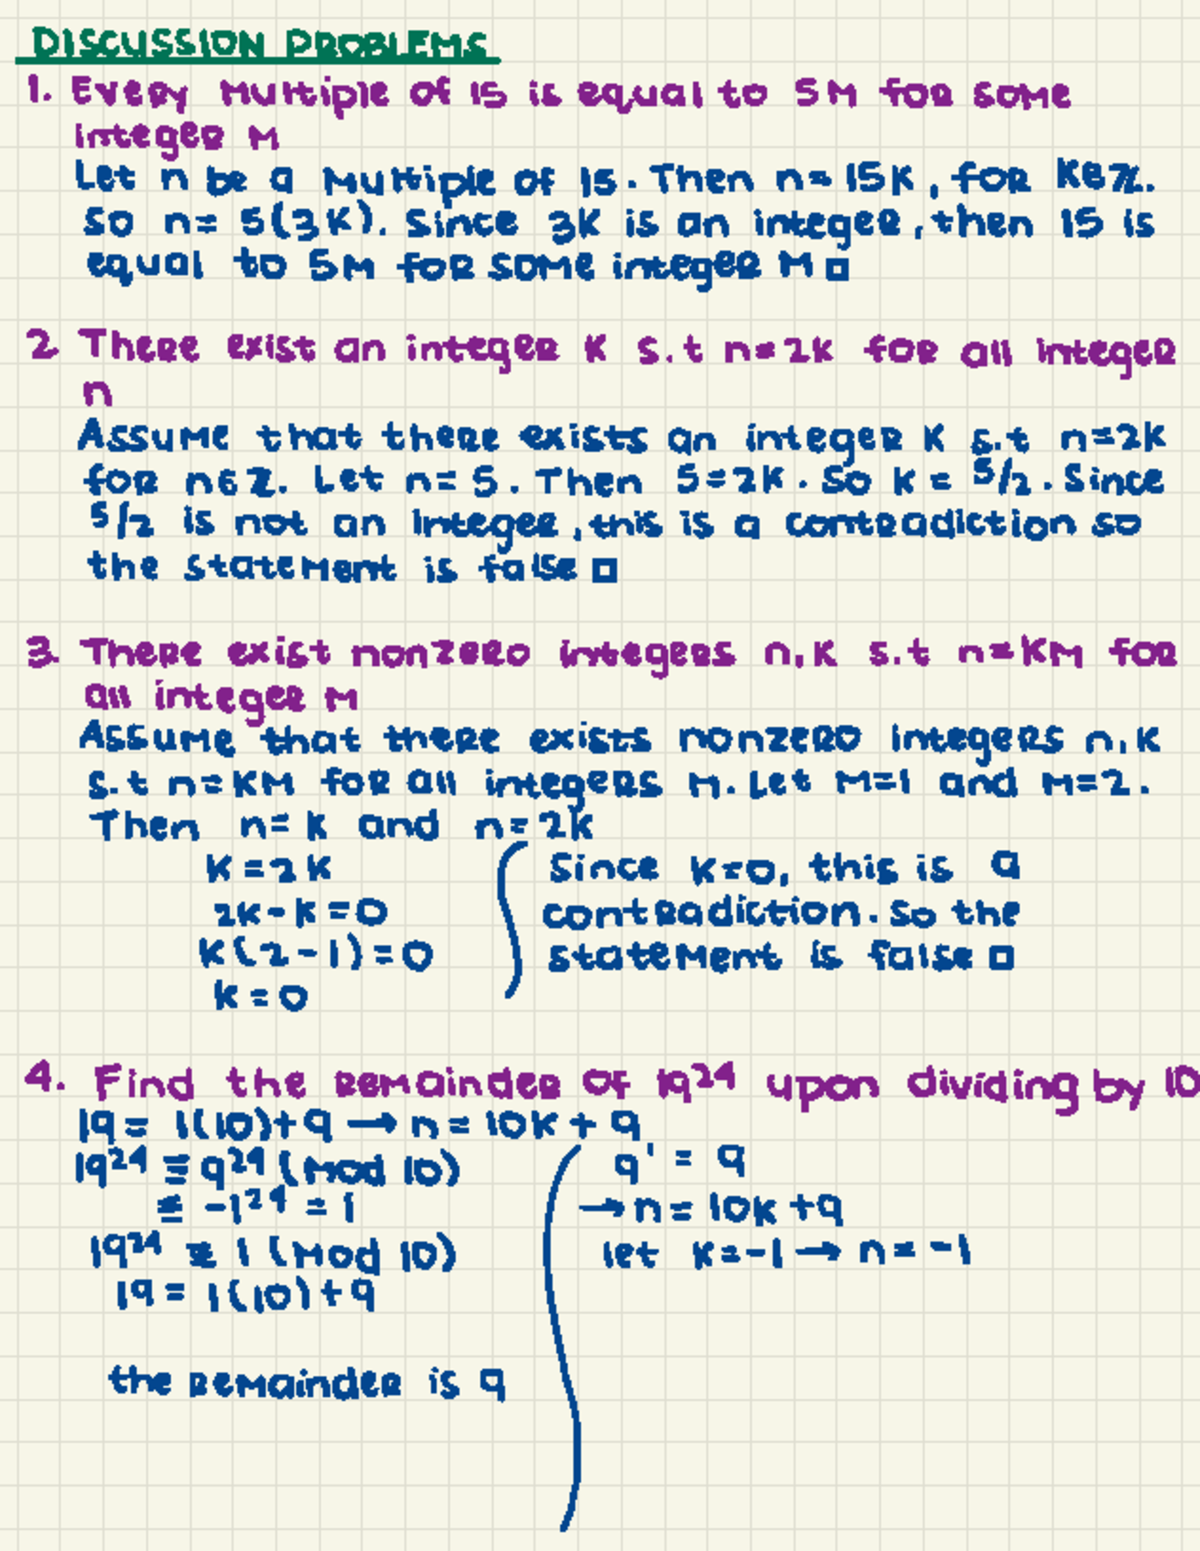 DISCUSSION PROBLEMS
1. Every multiple of 15 is equal to 5M for some
integer M
Let n be a multiple of 15. Then n = 15K, for K∈ℤ.
So n = 5(3K). Since 3K is an integer, then 15 is
equal to 5M for some integer M □
2. There exist an integer K s.t n=2K for all integer
n
Assume that there exists an integer K s.t n=2K
for n∈Z. Let n=5. Then 5=2K. So K = 5/2. Since
5/2 is not an integer, this is a contradiction so
the statement is false □
3. There exist nonzero integers n,K s.t n=KM for
all integer M
Assume that there exists nonzero integers n,K
s.t n=KM for all integers M. Let M=1 and M=2.
Then n=K and n=2K
K=2K
2K-K=0
K(2-1)=0
K=0
Since K=0, this is a
contradiction. So the
statement is false □
4. Find the remainder of 19²⁴ upon dividing by 10
19 = 1(10)+9 → n = 10K + 9
19²⁴ ≡ 9²⁴ (mod 10)
≡ -1²⁴ = 1
19²⁴ ≡ 1 (mod 10)
19 = 1(10)+9
the remainder is 9
9¹ = 9
→ n = 10K +9
let K=-1 → n = -1